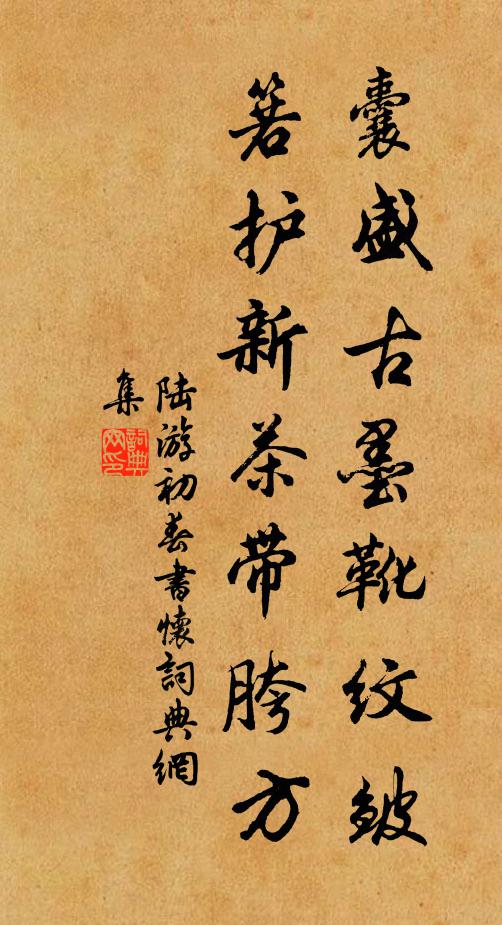 囊盛古墨靴纹皱
箬护新茶带胯方
陆游初春書懷詞典網
集
詞典
网印